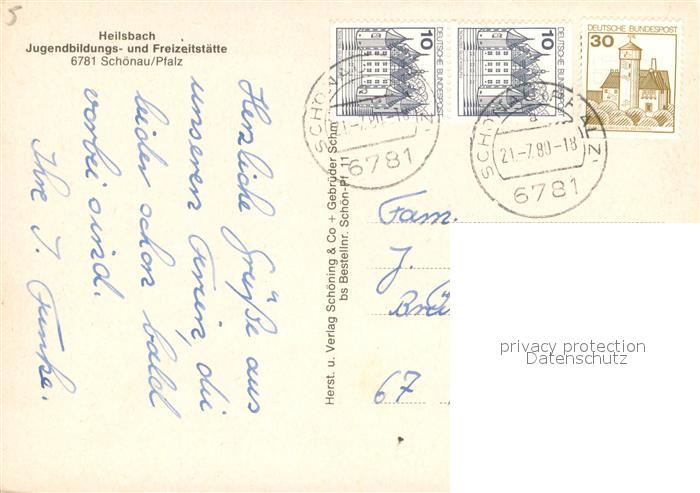 5
Heilsbach
Jugendbildungs- und Freizeitstätte
6781 Schönau/Pfalz
Herzliche Grüße aus
unseren Ferien, die
leider schon bald
vorbei sind.
Ihre J. Funke.
Herst. u. Verlag Schöning & Co + Gebrüder Schm
bs Bestellnr. Schön-Pf 11
10
DEUTSCHE BUNDESPOST
10
DEUTSCHE BUNDESPOST
30
DEUTSCHE BUNDESPOST
21.-7.80.-18
6781
21.-7.80-18
6781
Fam.
J.
Brü
67
privacy protection
Datenschutz